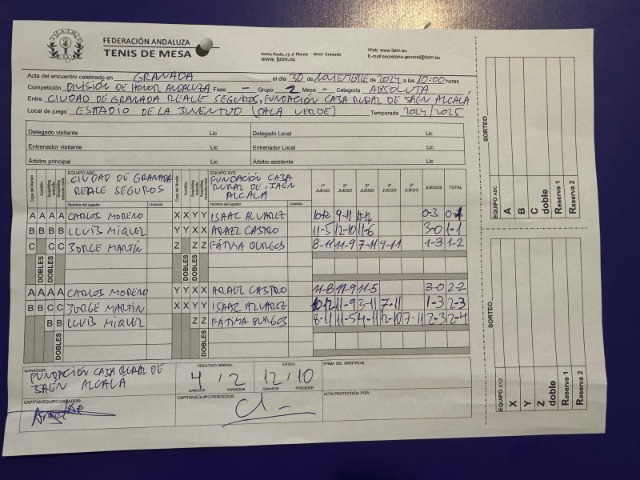 FEDERACIÓN ANDALUZA
TENIS DE MESA
www.fatm.eu
Web: www.fatm.eu
E-mail:secretario-general@fatm.eu
Acta del encuentro celebrado en GRANADA el día 30 de NOVIEMBRE de 2024 a las 10:00 horas
Competición DIVISIÓN DE HONOR ANDALUZA Fase — Grupo 2 Mesa — Categoría ABSOLUTA
Entre CIUDAD DE GRANADA REALE SEGUROS, FUNDACIÓN CAJA RURAL DE JAÉN ALCALÁ
Local de juego: ESTADIO DE LA JUVENTUD (SALA VERDE) Temporada 2024/2025
Delegado visitante Lic Delegado Local Lic
Entrenador visitante Lic Entrenador Local Lic
Árbitro principal Lic Árbitro asistente Lic
EQUIPO ABC CIUDAD DE GRANADA REALE SEGUROS
EQUIPO XYZ FUNDACIÓN CAJA RURAL DE JAÉN ALCALA
1º JUEGO 2º JUEGO 3º JUEGO 4º JUEGO 5º JUEGO JUEGOS TOTAL
Nombre del jugador Licencia Nombre del jugador Licencia
A A A A CARLOS MORENO X X Y Y ISAAC ALVAREZ 9-11 0-3
B B B B LLUÍS MIQUEL Y Y X X ARAEL CASTRO 11-5 12-10 11-6 3-0 1-1
C C JORGE MARTÍN Z Z FÁTIMA BURGOS 8-11 11-9 7-11 9-11 1-3 1-2
DOBLES DOBLES DOBLES DOBLES
A A A A CARLOS MORENO Y Y X X ARAEL CASTRO 11-8 11-9 11-5 3-0 2-2
B B C C JORGE MARTÍN X X Y Y ISAAC ALVAREZ 10-12 11-9 3-11 7-11 1-3 2-3
B B LLUÍS MIQUEL Z Z FÁTIMA BURGOS 8-11 11-5 4-11 12-10 7-11 2-3 2-4
DOBLES DOBLES
GANADOR: FUNDACIÓN CAJA RURAL DE JAEN ALCALA
RESULTADO FINAL 4 / 2
JUEGOS 12 / 10
GANADOR PERDEDOR GANADOR PERDEDOR
FIRMA DEL ARBITRO/A
CAPITÁN EQUIPO GANADOR:
CAPITÁN EQUIPO PERDEDOR:
ACTA PROTESTADA POR:
SORTEO
EQUIPO ABC
A
B
C
doble
Reserva 1
Reserva 2
SORTEO
EQUIPO XYZ
X
Y
Z
doble
Reserva 1
Reserva 2